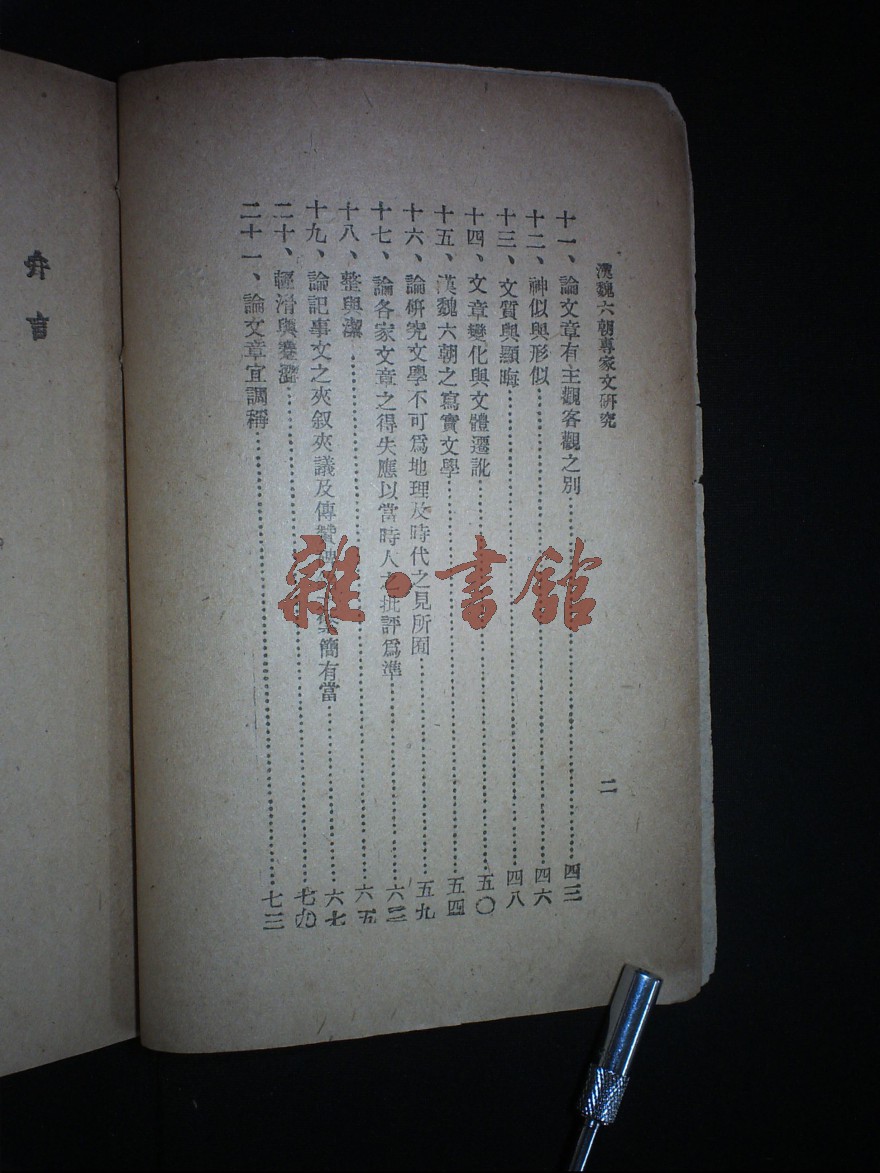 漢魏六朝專家文研究
二
十一、論文章有主觀客觀之別……四三
十二、神似與形似……四六
十三、文質與顯晦……四八
十四、文章變化與文體遷訛……五〇
十五、漢魏六朝之寫實文學……五四
十六、論研究文學不可爲地理及時代之見所囿……五九
十七、論各家文章之得失應以當時人之批評爲準……六三
十八、整與潔……六五
十九、論記事文之夾叙夾議及傳贊碑 簡有當……六七
二十、輕滑與蹇澀……七〇
二十一、論文章宜調稱……七三
弁言
雜·書館